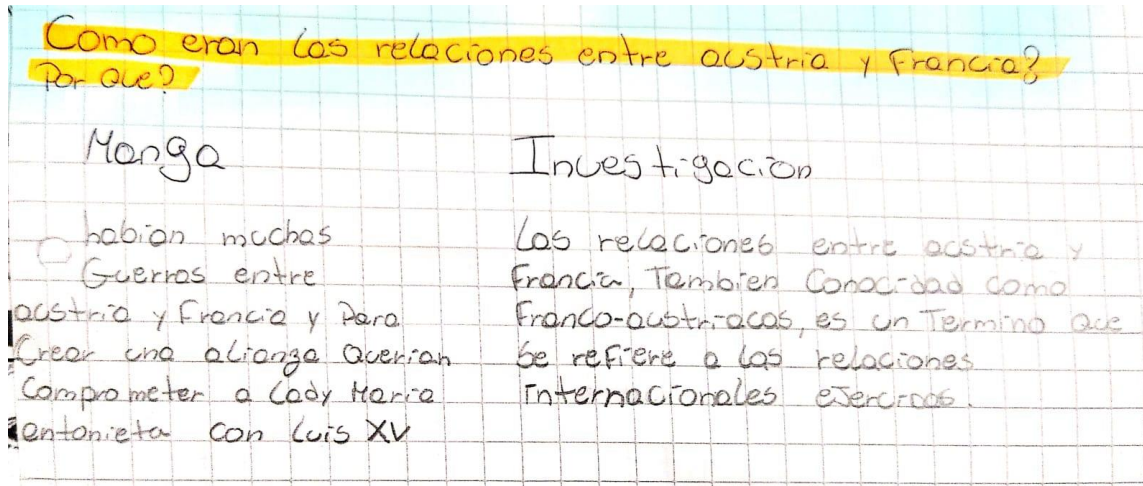 Como eran las relaciones entre austria y Francia?
Por Que?
Manga
habian muchas
Guerras entre
austria y Francia y Para
Crear una alianza Querian
Comprometer a Lady Maria
antonieta con Luis XV
Investigacion
Las relaciones entre austria y
Francia, Tambien Conocidad como
Franco-austriacas, es un Termino Que
se refiere a las relaciones
internacionales ejercidas.